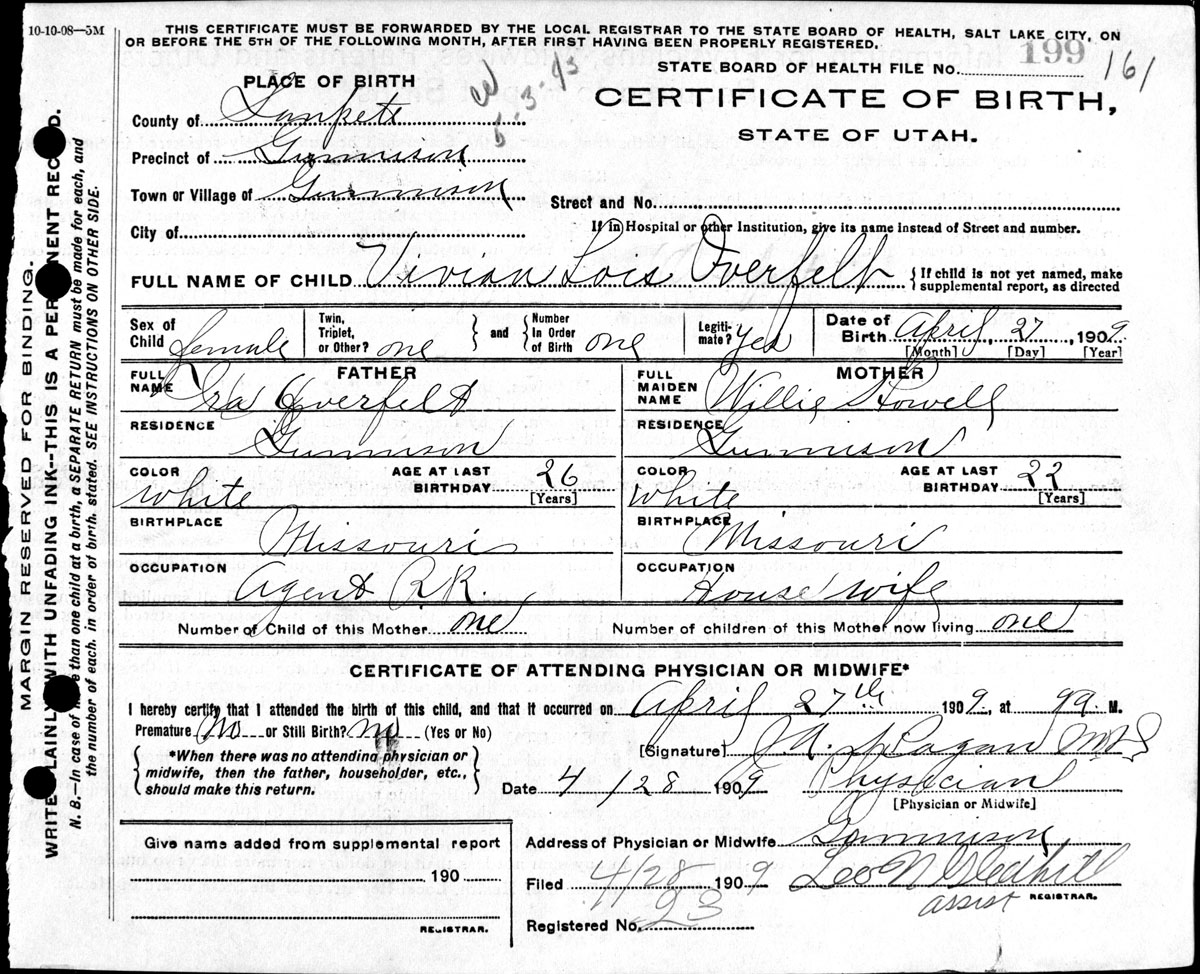 10-10-08—3M
THIS CERTIFICATE MUST BE FORWARDED BY THE LOCAL REGISTRAR TO THE STATE BOARD OF HEALTH, SALT LAKE CITY, ON
OR BEFORE THE 5TH OF THE FOLLOWING MONTH, AFTER FIRST HAVING BEEN PROPERLY REGISTERED.
STATE BOARD OF HEALTH FILE No. 199 161
PLACE OF BIRTH
CERTIFICATE OF BIRTH,
STATE OF UTAH.
County of Sanpete
Precinct of Gunnison
Town or Village of Gunnison
Street and No.
City of
If in Hospital or other Institution, give its name instead of Street and number.
FULL NAME OF CHILD Vivian Lois Overfelt {If child is not yet named, make supplemental report, as directed
Sex of Child female Twin, Triplet, or Other? one } and { Number In Order of Birth one Legitimate? yes Date of Birth April, 27, 1909
[Month] [Day] [Year]
FATHER
FULL NAME Ira Overfelt
RESIDENCE Gunnison
COLOR White AGE AT LAST BIRTHDAY 26 [Years]
BIRTHPLACE Missouri
OCCUPATION Agent R.R.
MOTHER
FULL MAIDEN NAME Willie Howell
RESIDENCE Gunnison
COLOR White AGE AT LAST BIRTHDAY 22 [Years]
BIRTHPLACE Missouri
OCCUPATION House wife
Number of Child of this Mother one Number of children of this Mother now living one
CERTIFICATE OF ATTENDING PHYSICIAN OR MIDWIFE*
I hereby certify that I attended the birth of this child, and that it occurred on April 27th 1909, at 9 a. M.
Premature No or Still Birth? No (Yes or No)
{ *When there was no attending physician or
midwife, then the father, householder, etc.,
should make this return. }
[Signature] Hagan
Date 4/28 1909 Physician
[Physician or Midwife]
Give name added from supplemental report
190
REGISTRAR.
Address of Physician or Midwife Gunnison
Filed 4/28 1909 Leo N Gledhill
assist REGISTRAR.
Registered No. 23
MARGIN RESERVED FOR BINDING.
WRITE PLAINLY WITH UNFADING INK—THIS IS A PERMANENT RECORD.
N. B.—In case of more than one child at a birth, a SEPARATE RETURN must be made for each, and
the number of each, in order of birth, stated. SEE INSTRUCTIONS ON OTHER SIDE.